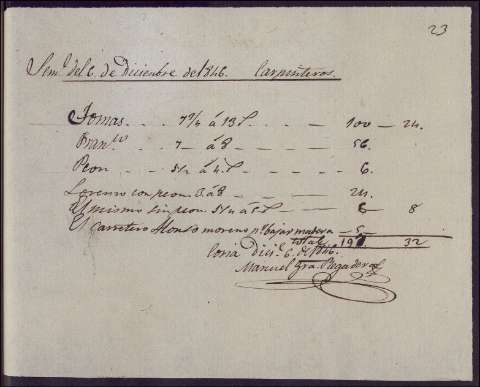 23
Sem.ª del 6. de Diciembre de 1846. Carpinteros.
Tomas . . . 7¾ á 13 — — 100 — 24.
Fran.co — 7 — á 8 — — 56.
Peon — á 4 — — 6.
Lorenzo con peon 3 á 8 — — 24.
Al mismo sin peon — — 6 8
El Carretero Alonso moreno p.r bajar madera — 5
total 197 32
Coria Dici.e 6. de 1846.
Manuel Gra.